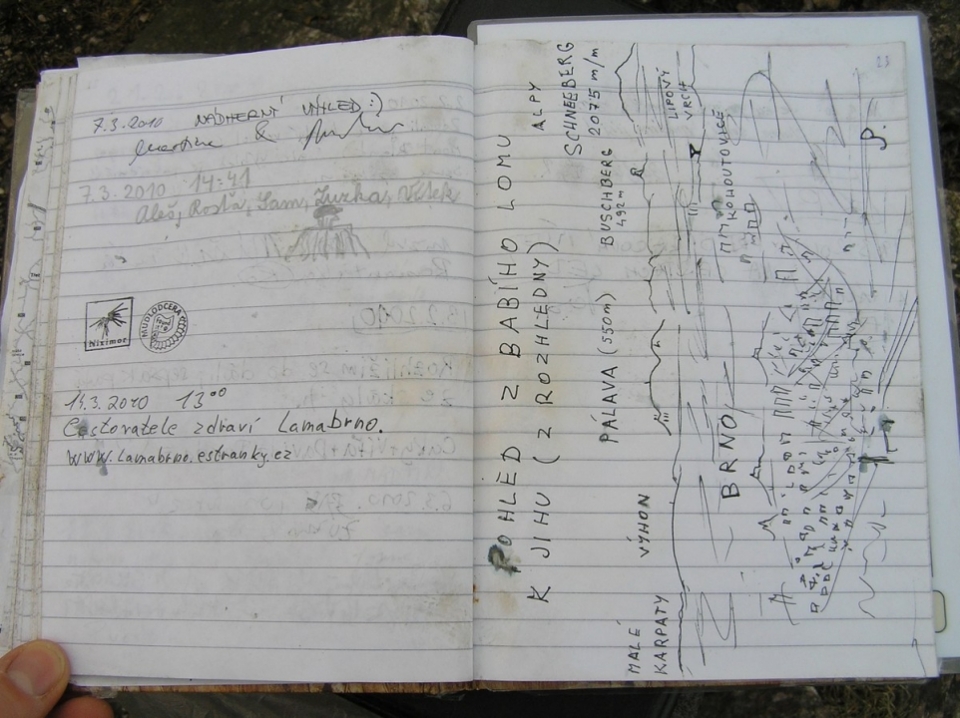 7.3.2010 NÁDHERNÝ VÝHLED :)
Martina &
7.3.2010 14:41
Aleš, Rosťa, Sam, Zuzka, Vítek
Nizimor
MUDLODCERA
14.3.2010 13⁰⁰
Cestovatele zdraví Lamabrno.
www.lamabrno.estranky.cz
POHLED Z BABÍHO LOMU
K JIHU (Z ROZHLEDNY)
ALPY
SCHNEEBERG
2075 m/m
MALÉ
KARPATY
VÝHON
PÁLAVA (550m)
BUSCHBERG
492m
LIPOVÝ
VRCH
BRNO
KOHOUTOVICE